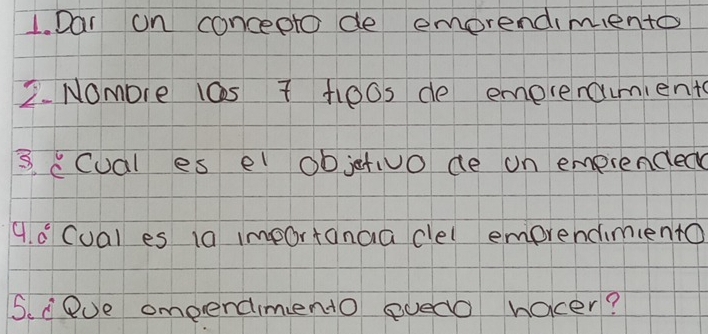 1. Dar un concepto de emprendimiento
2. Nombre las 7 tipos de emprendimiento
3 ¿Cual es el objetivo de un emprended
4. ¿Cual es la importancia del emprendimiento
5. ¿Que emprendimiento puedo hacer?